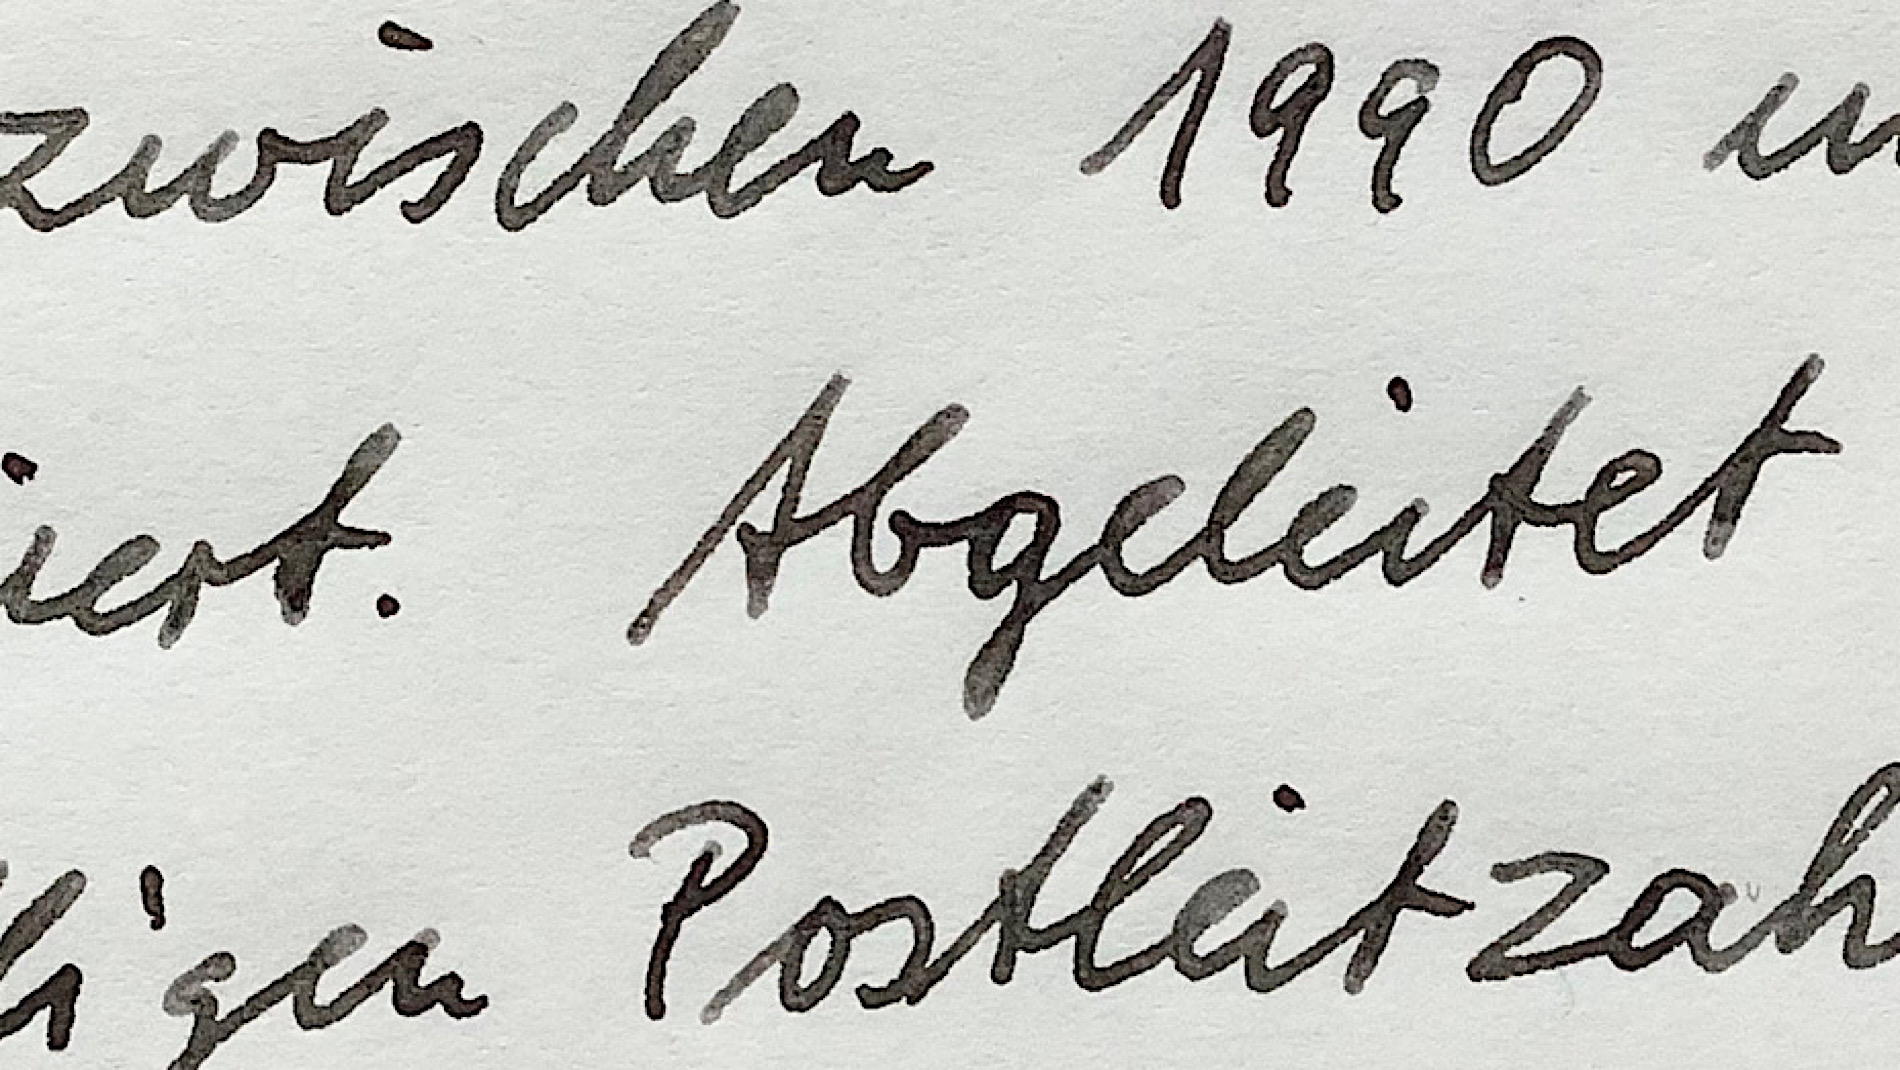 zwischen 1990 u
iert. Abgeleitet
igen Postleitzah